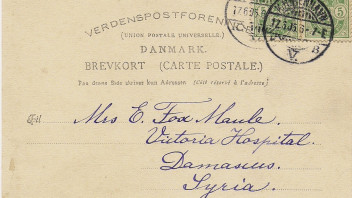 VERDENSPOSTFORENING
(UNION POSTALE UNIVERSELLE.)
DANMARK.
BREVKORT (CARTE POSTALE.)
Paa denne Side skrives kun Adressen (Côté réservé à l'adresse)
Til
Mrs E. Fox Maule.
Victoria Hospital.
Damascus.
Syria.
5
B
V.